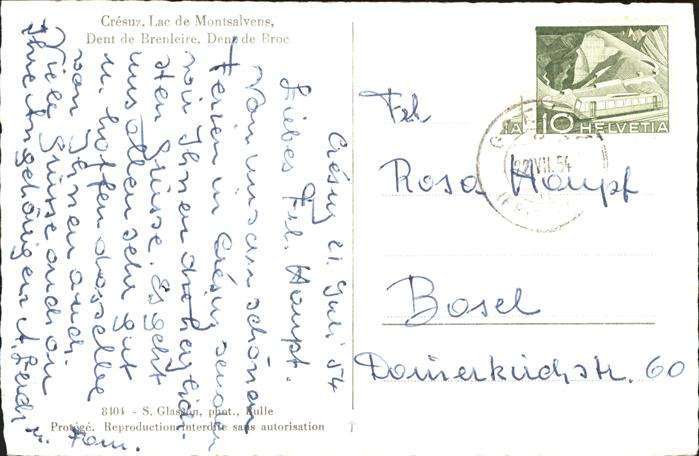 Crésuz, Lac de Montsalvens,
Dent de Brenleire, Dent de Broc
Crésuz 21. Juli 54
Liebes Frl. Haupt.
Von unsern schönen
Ferien in Crésuz senden
wir Ihnen die herzlich-
sten Grüsse. Es geht
uns allen sehr gut
u. hoffen dasselbe
von Ihnen auch.
Viele Grüsse auch an
Ihre Angehörigen
Fam.
8404 - S. Glasson, phot., Bulle
Protégé. Reproduction interdite sans autorisation
10 HELVETIA
VII. 54
Frl.
Rosa Haupt
Basel
Dornerkirchstr. 60